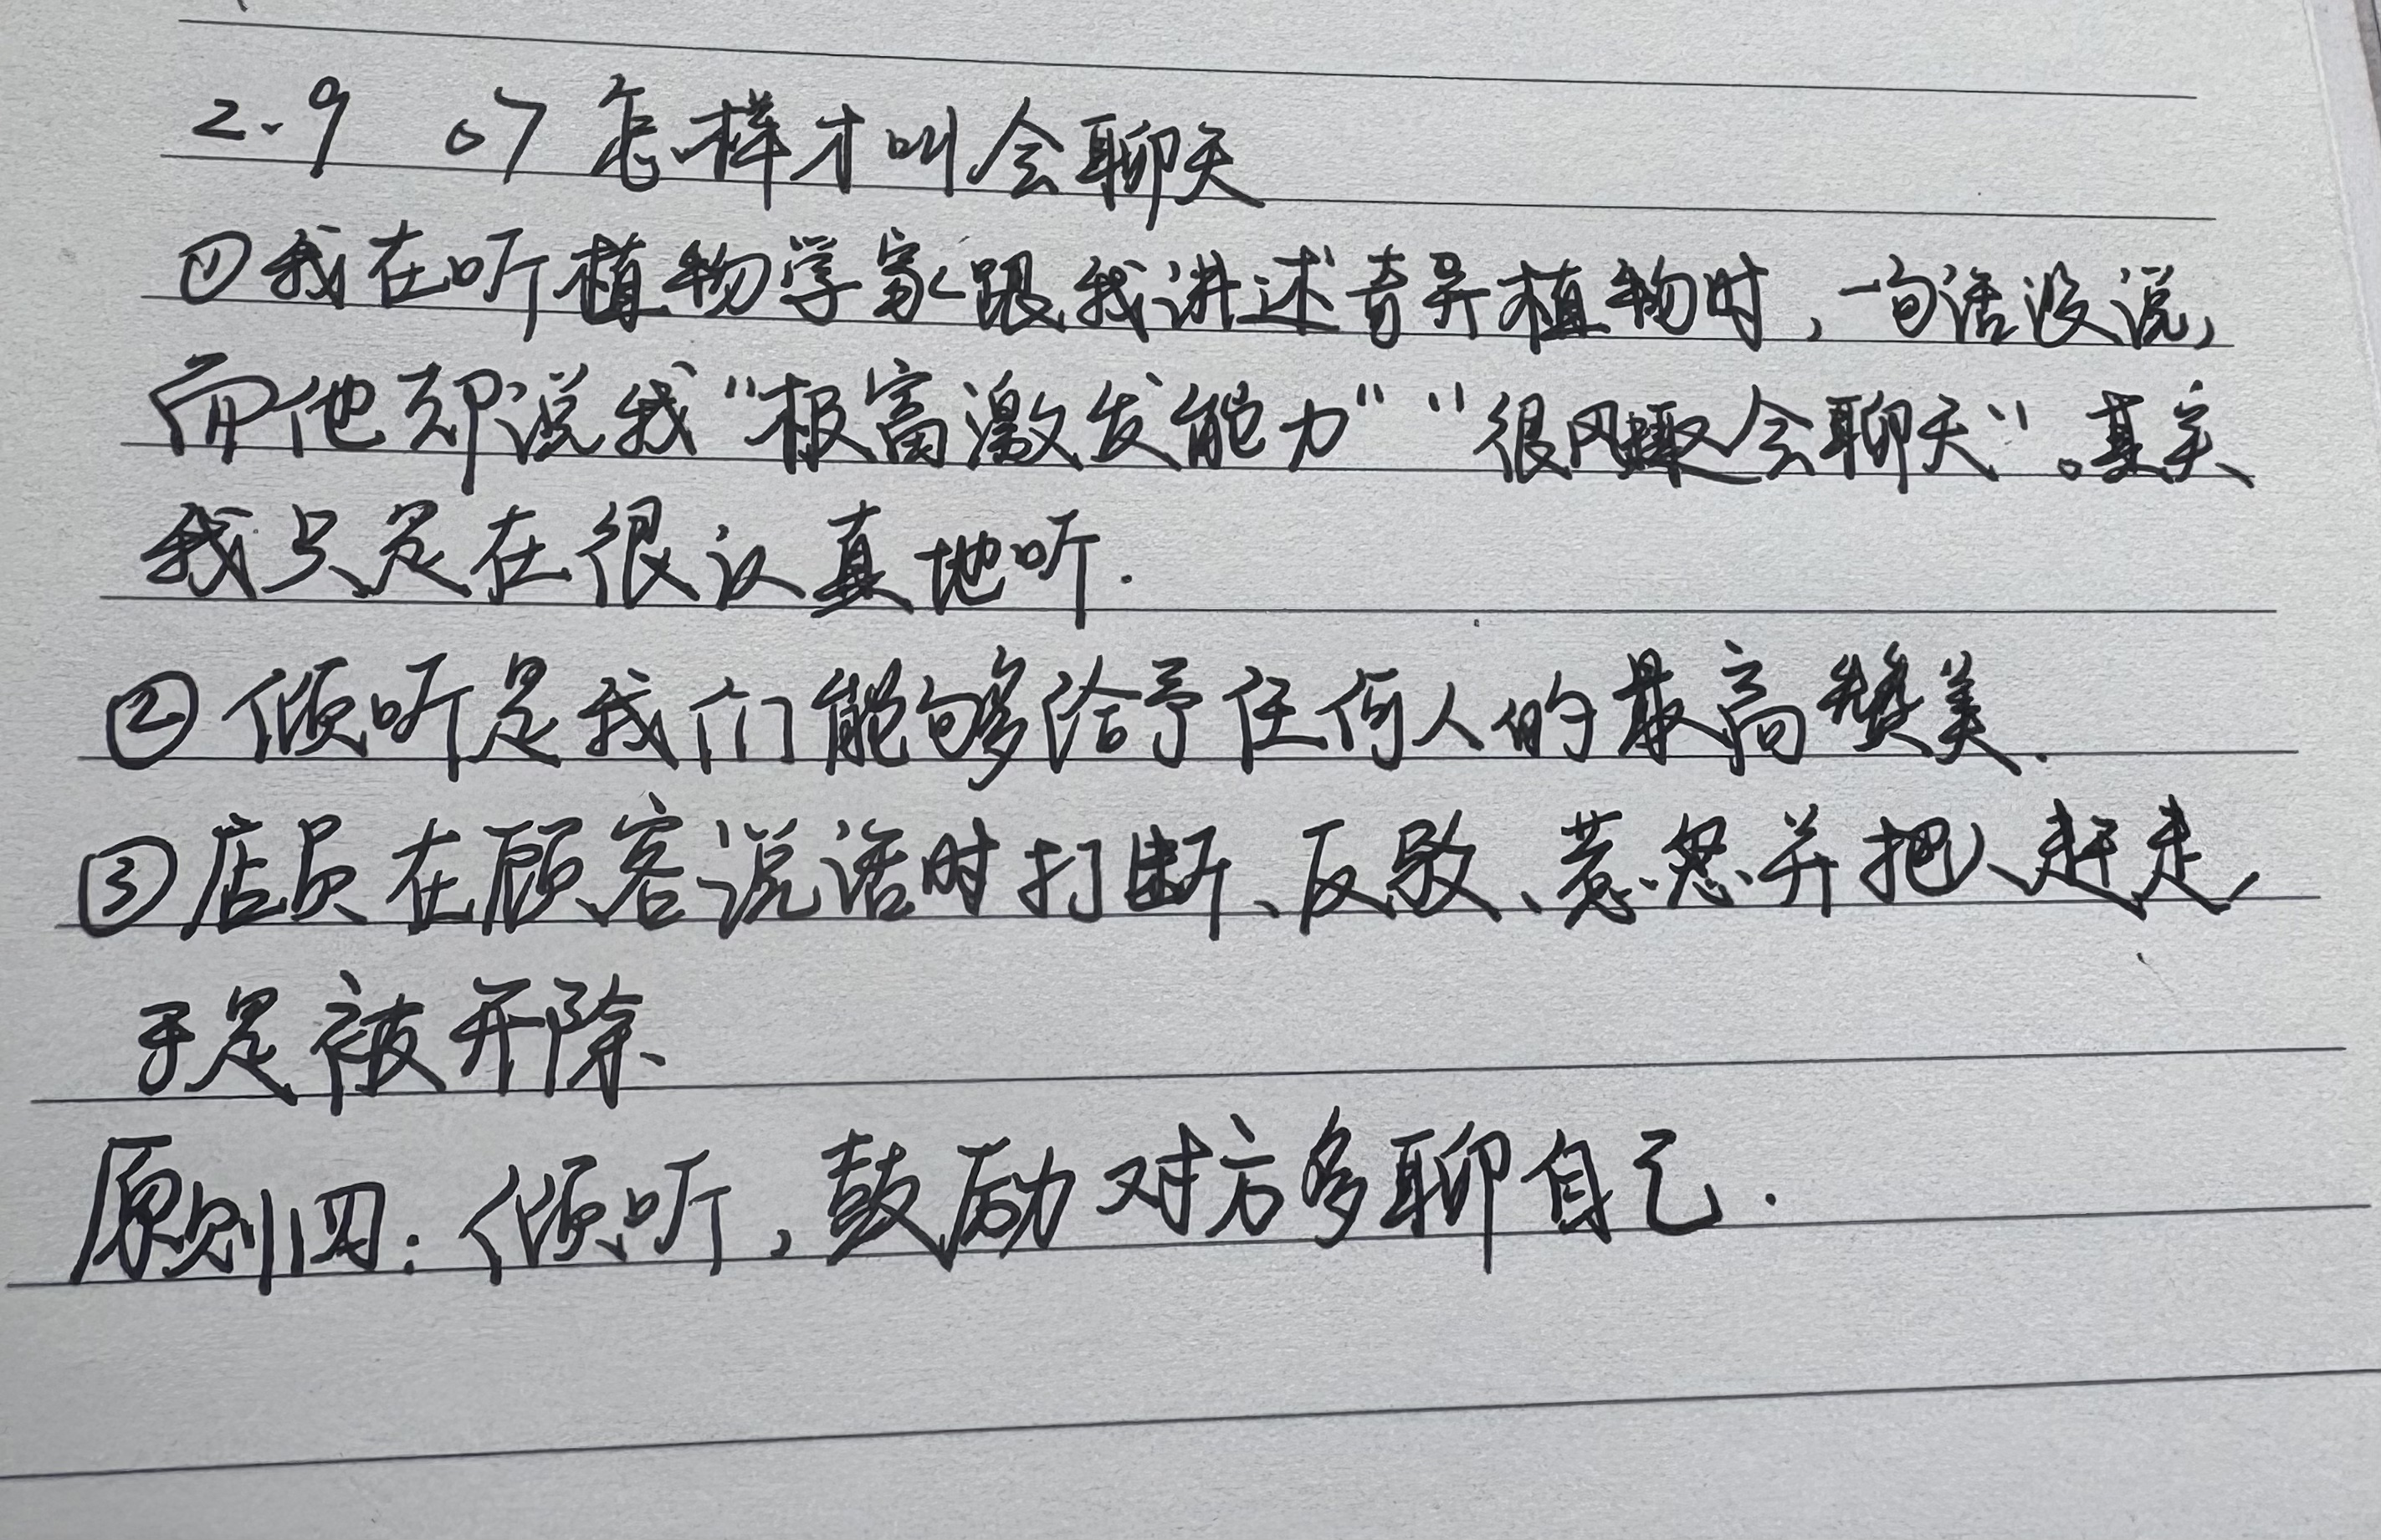 2.9 07 怎样才叫会聊天
①我在听植物学家跟我讲述奇异植物时，一句话没说，
而他却说我“极富激发能力”“很风趣会聊天”。其实
我只是在很认真地听.
②倾听是我们能够给予任何人的最高赞美.
③店员在顾客说话时打断、反驳、惹怒并把人赶走，
于是被开除、
原则四：倾听，鼓励对方多聊自己.